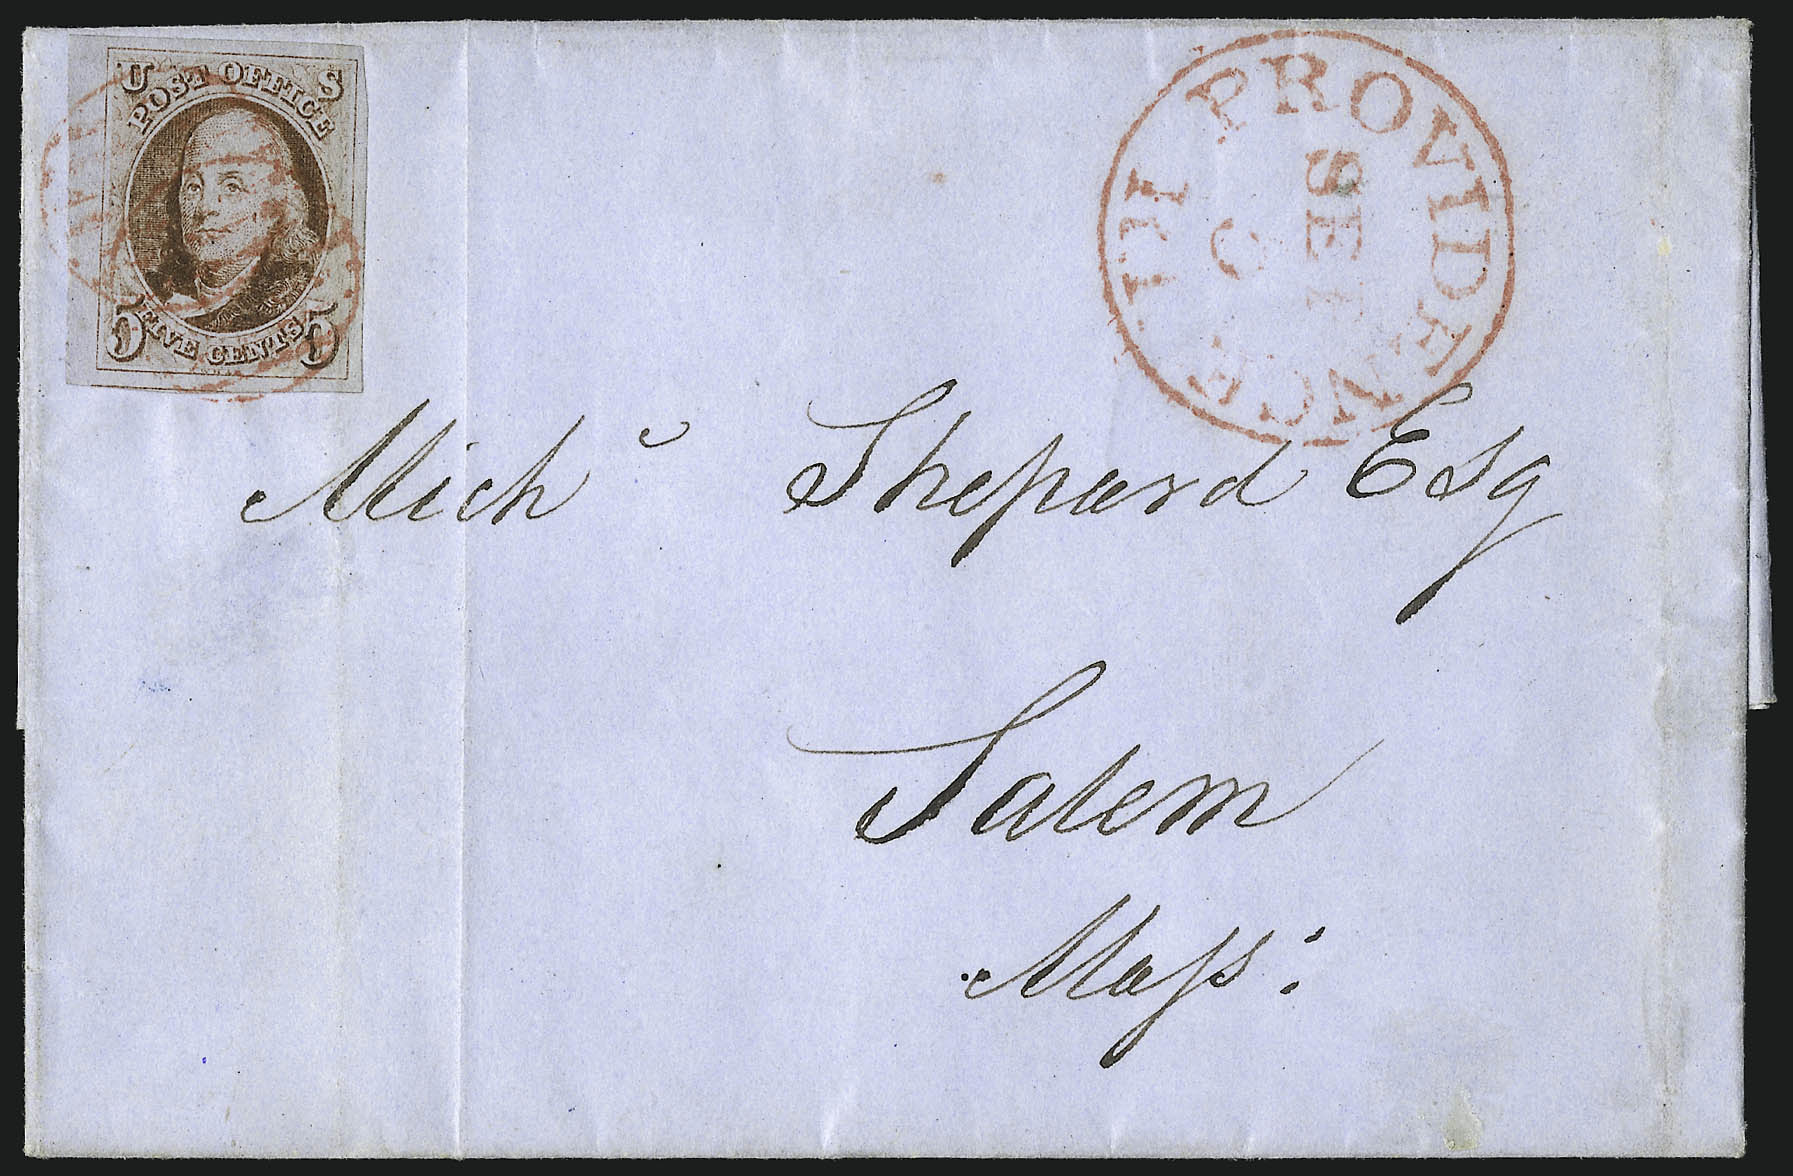 U S
POST OFFICE
5 FIVE CENTS 5
PROVIDENCE
SEP
Michl Shepard Esq
Salem
Mass: